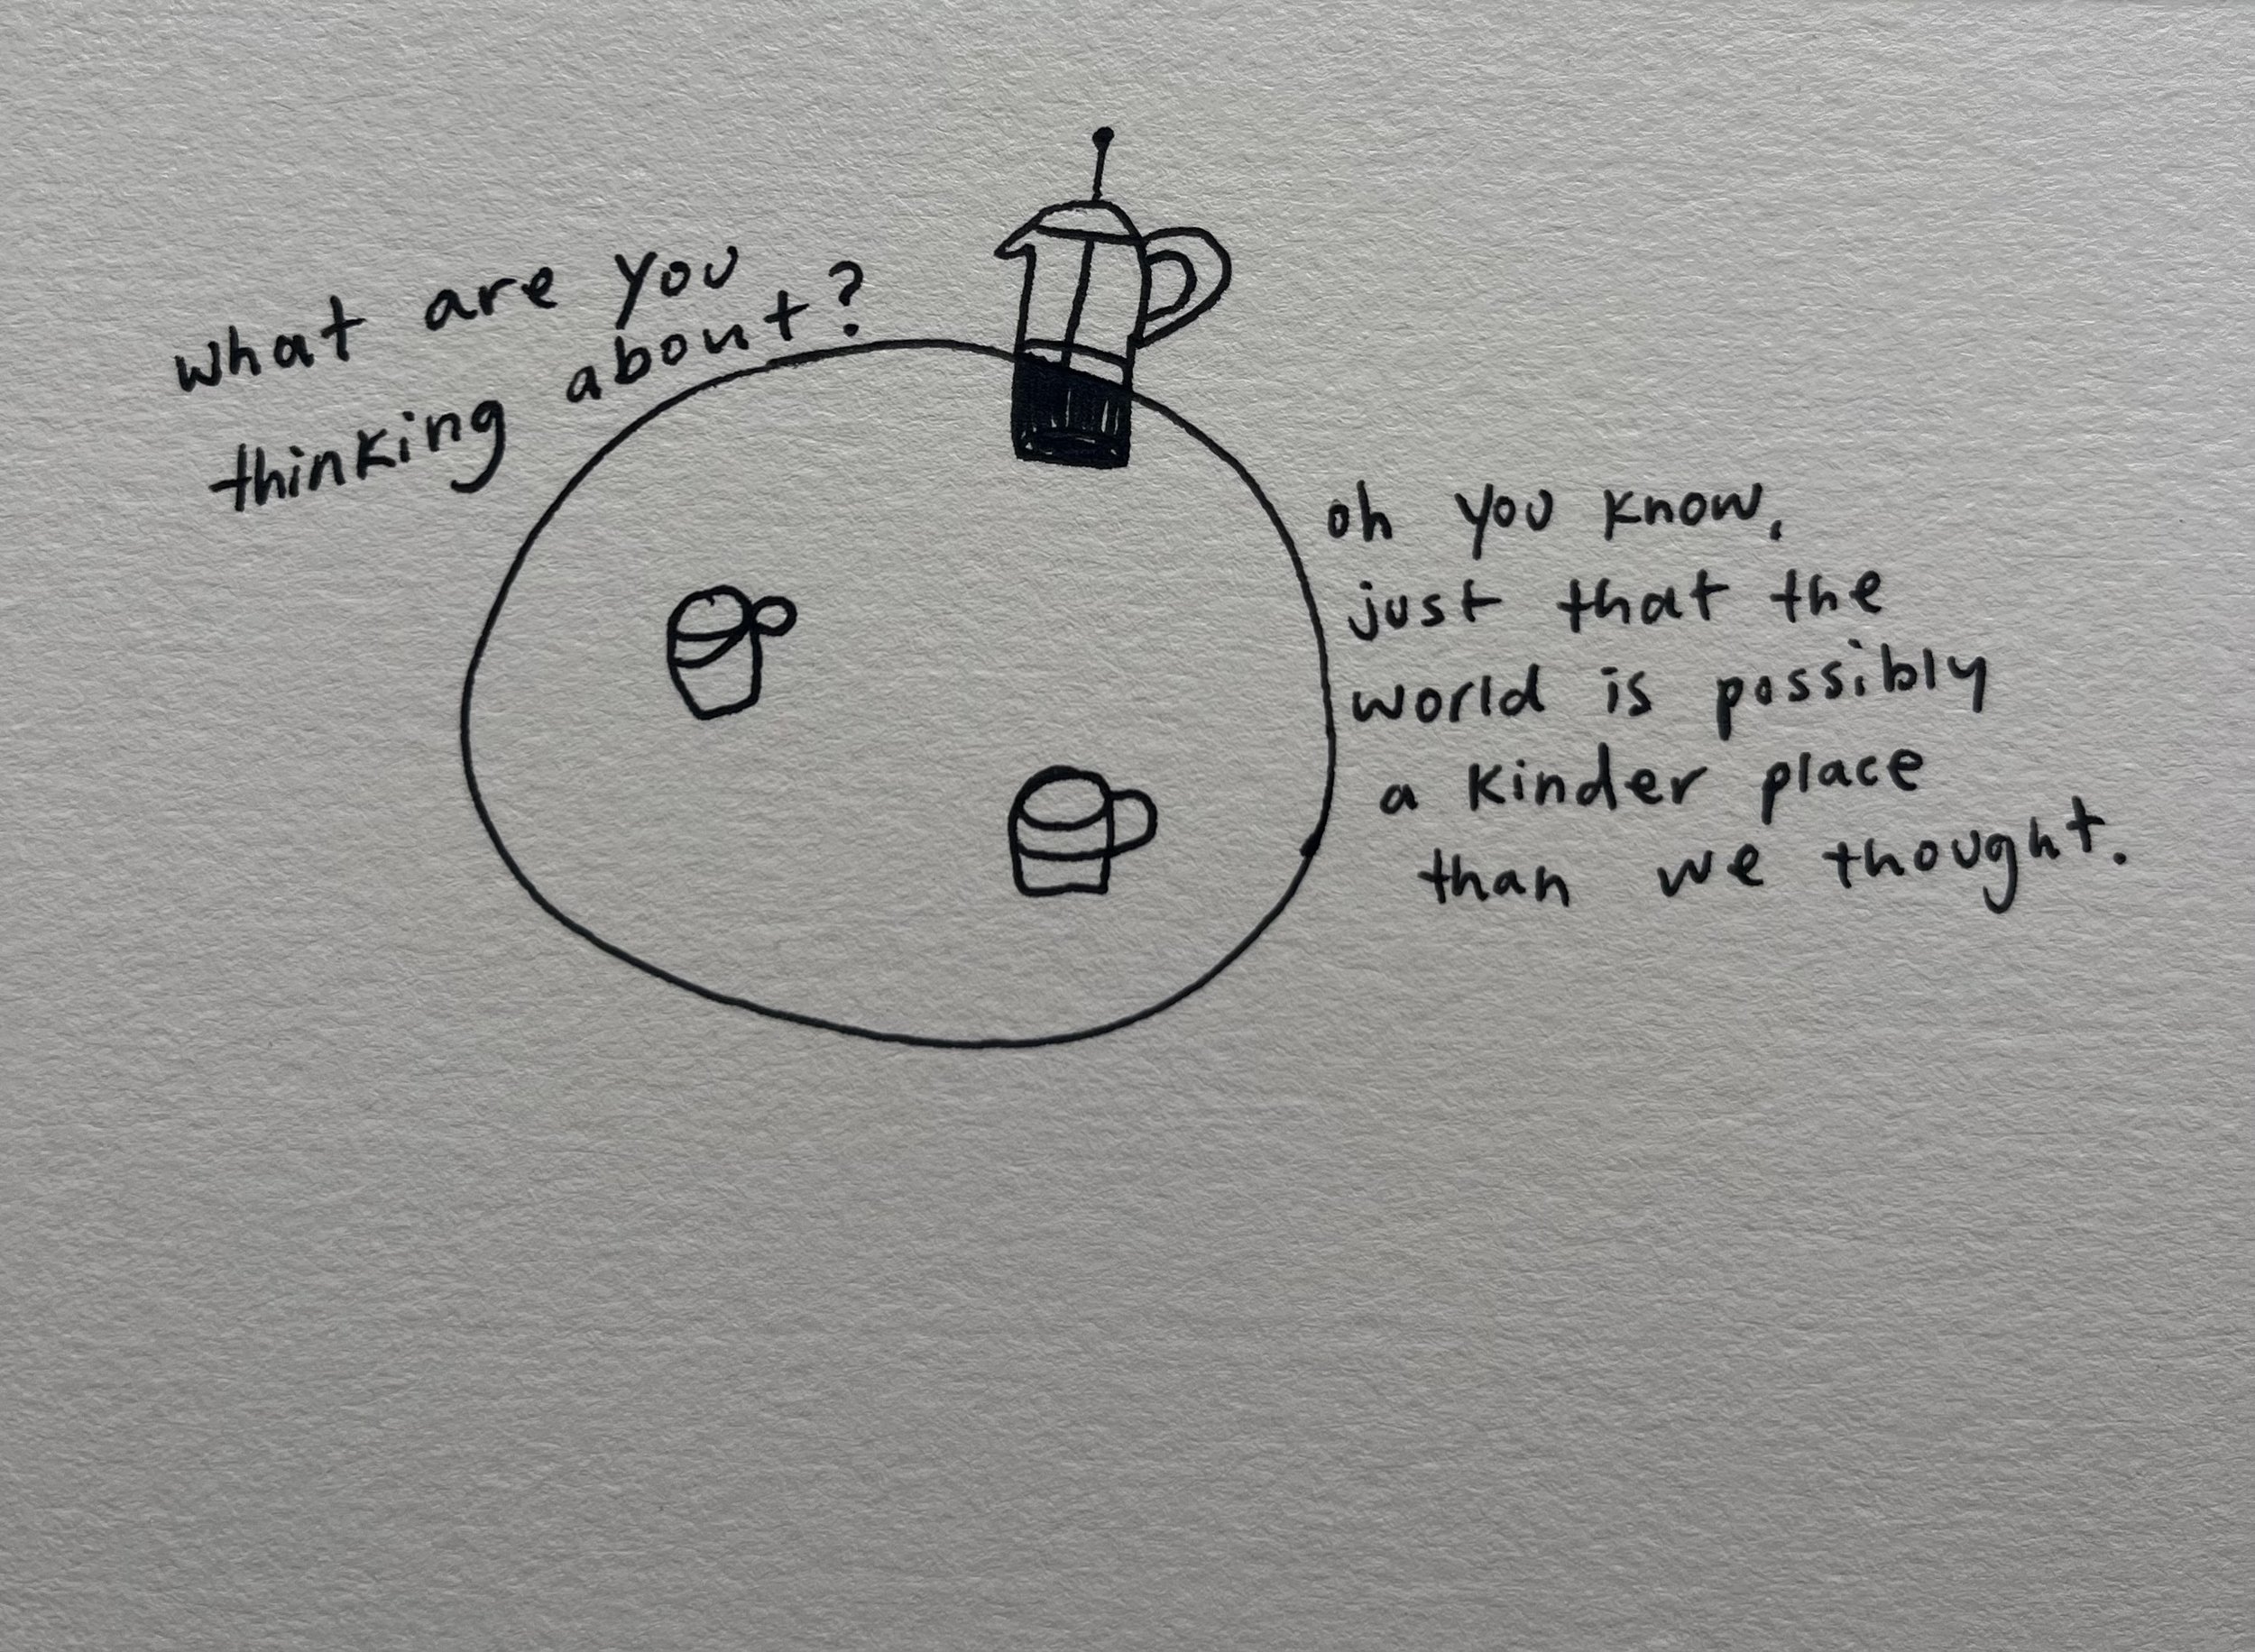 what are you
thinking about?
oh you know,
just that the
world is possibly
a kinder place
than we thought.